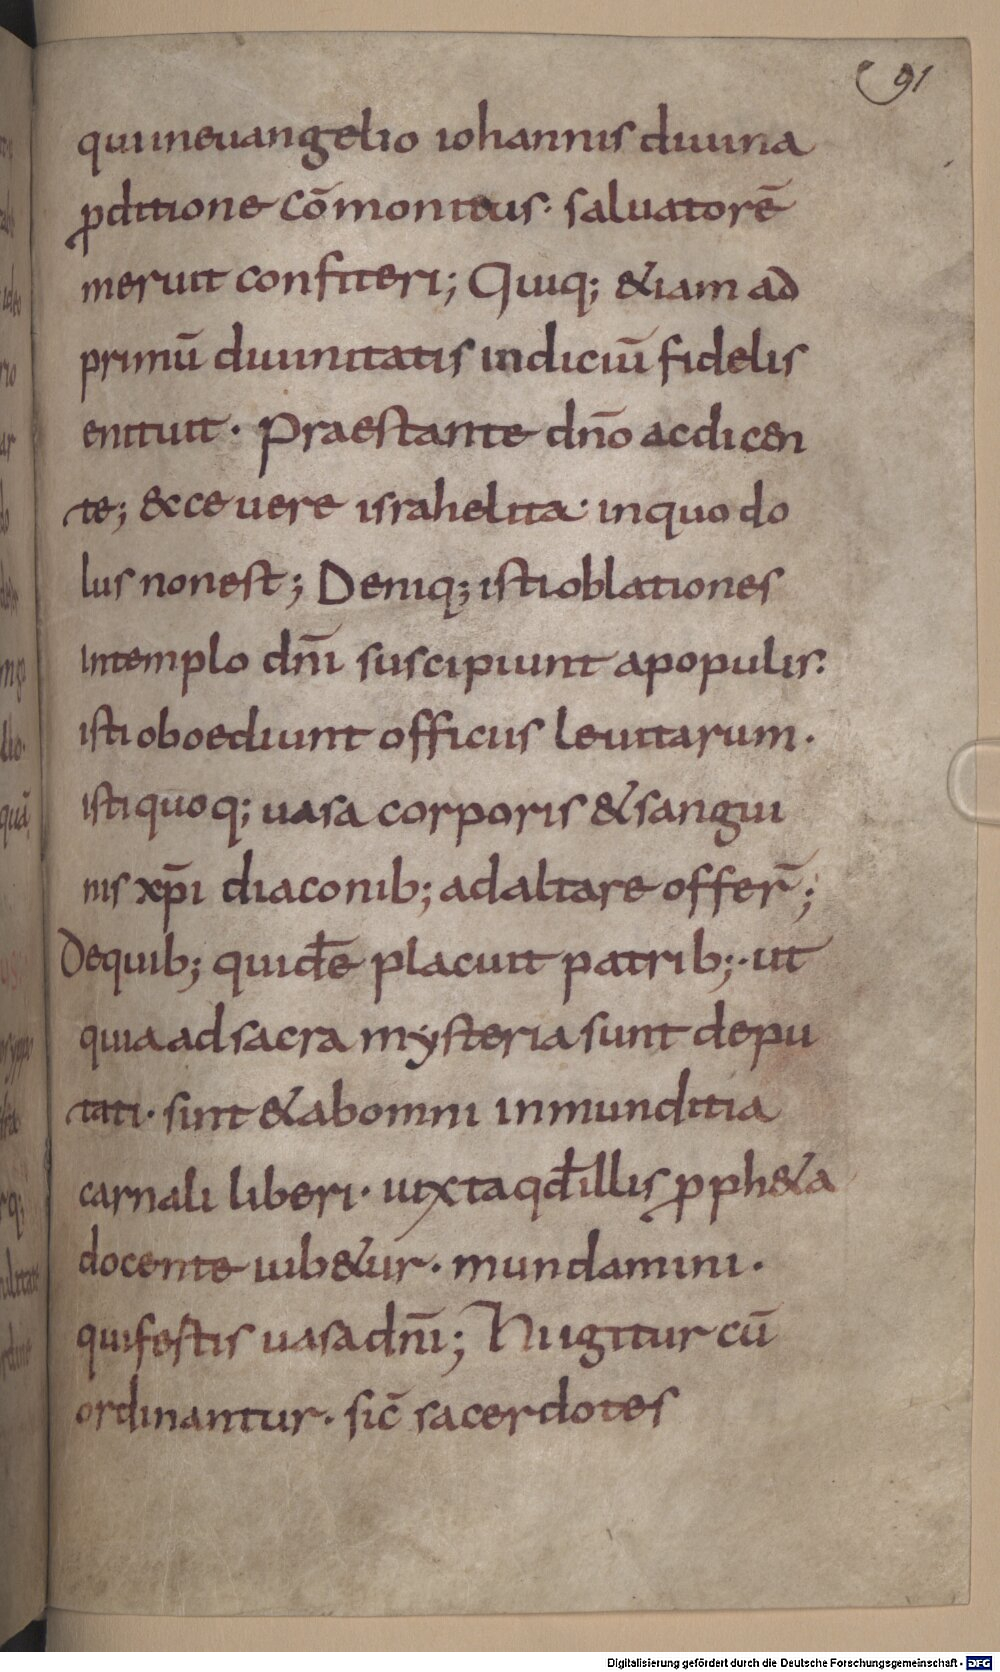 91
qui in euangelio iohannis diuina
ꝓditione cōmonitus· saluatorē
meruit confiteri; Quiq; &iam ad
primū diuinitatis indiciū fidelis
enituit· Praestante dn̄o ac dicen
te; Ecce uere israhelita· in quo do
lus non est; Deniq; isti oblationes
In templo dn̄i suscipiunt a populis:
isti oboediunt officiis leuitarum·
isti quoq; uasa corporis & sangui
nis xp̄i diaconib; ad altare offer̄;
De quib; quidē placuit patrib;· ut
quia ad sacra mysteria sunt depu
tati· sint & ab omni inmunditia
carnali liberi· iuxta qđ illis ꝓph&a
docente iub&ur· mundamini·
qui festis uasa dn̄i; Hi igitur cū
ordinantur· sic̄ sacerdotes
Digitalisierung gefördert durch die Deutsche Forschungsgemeinschaft - DFG